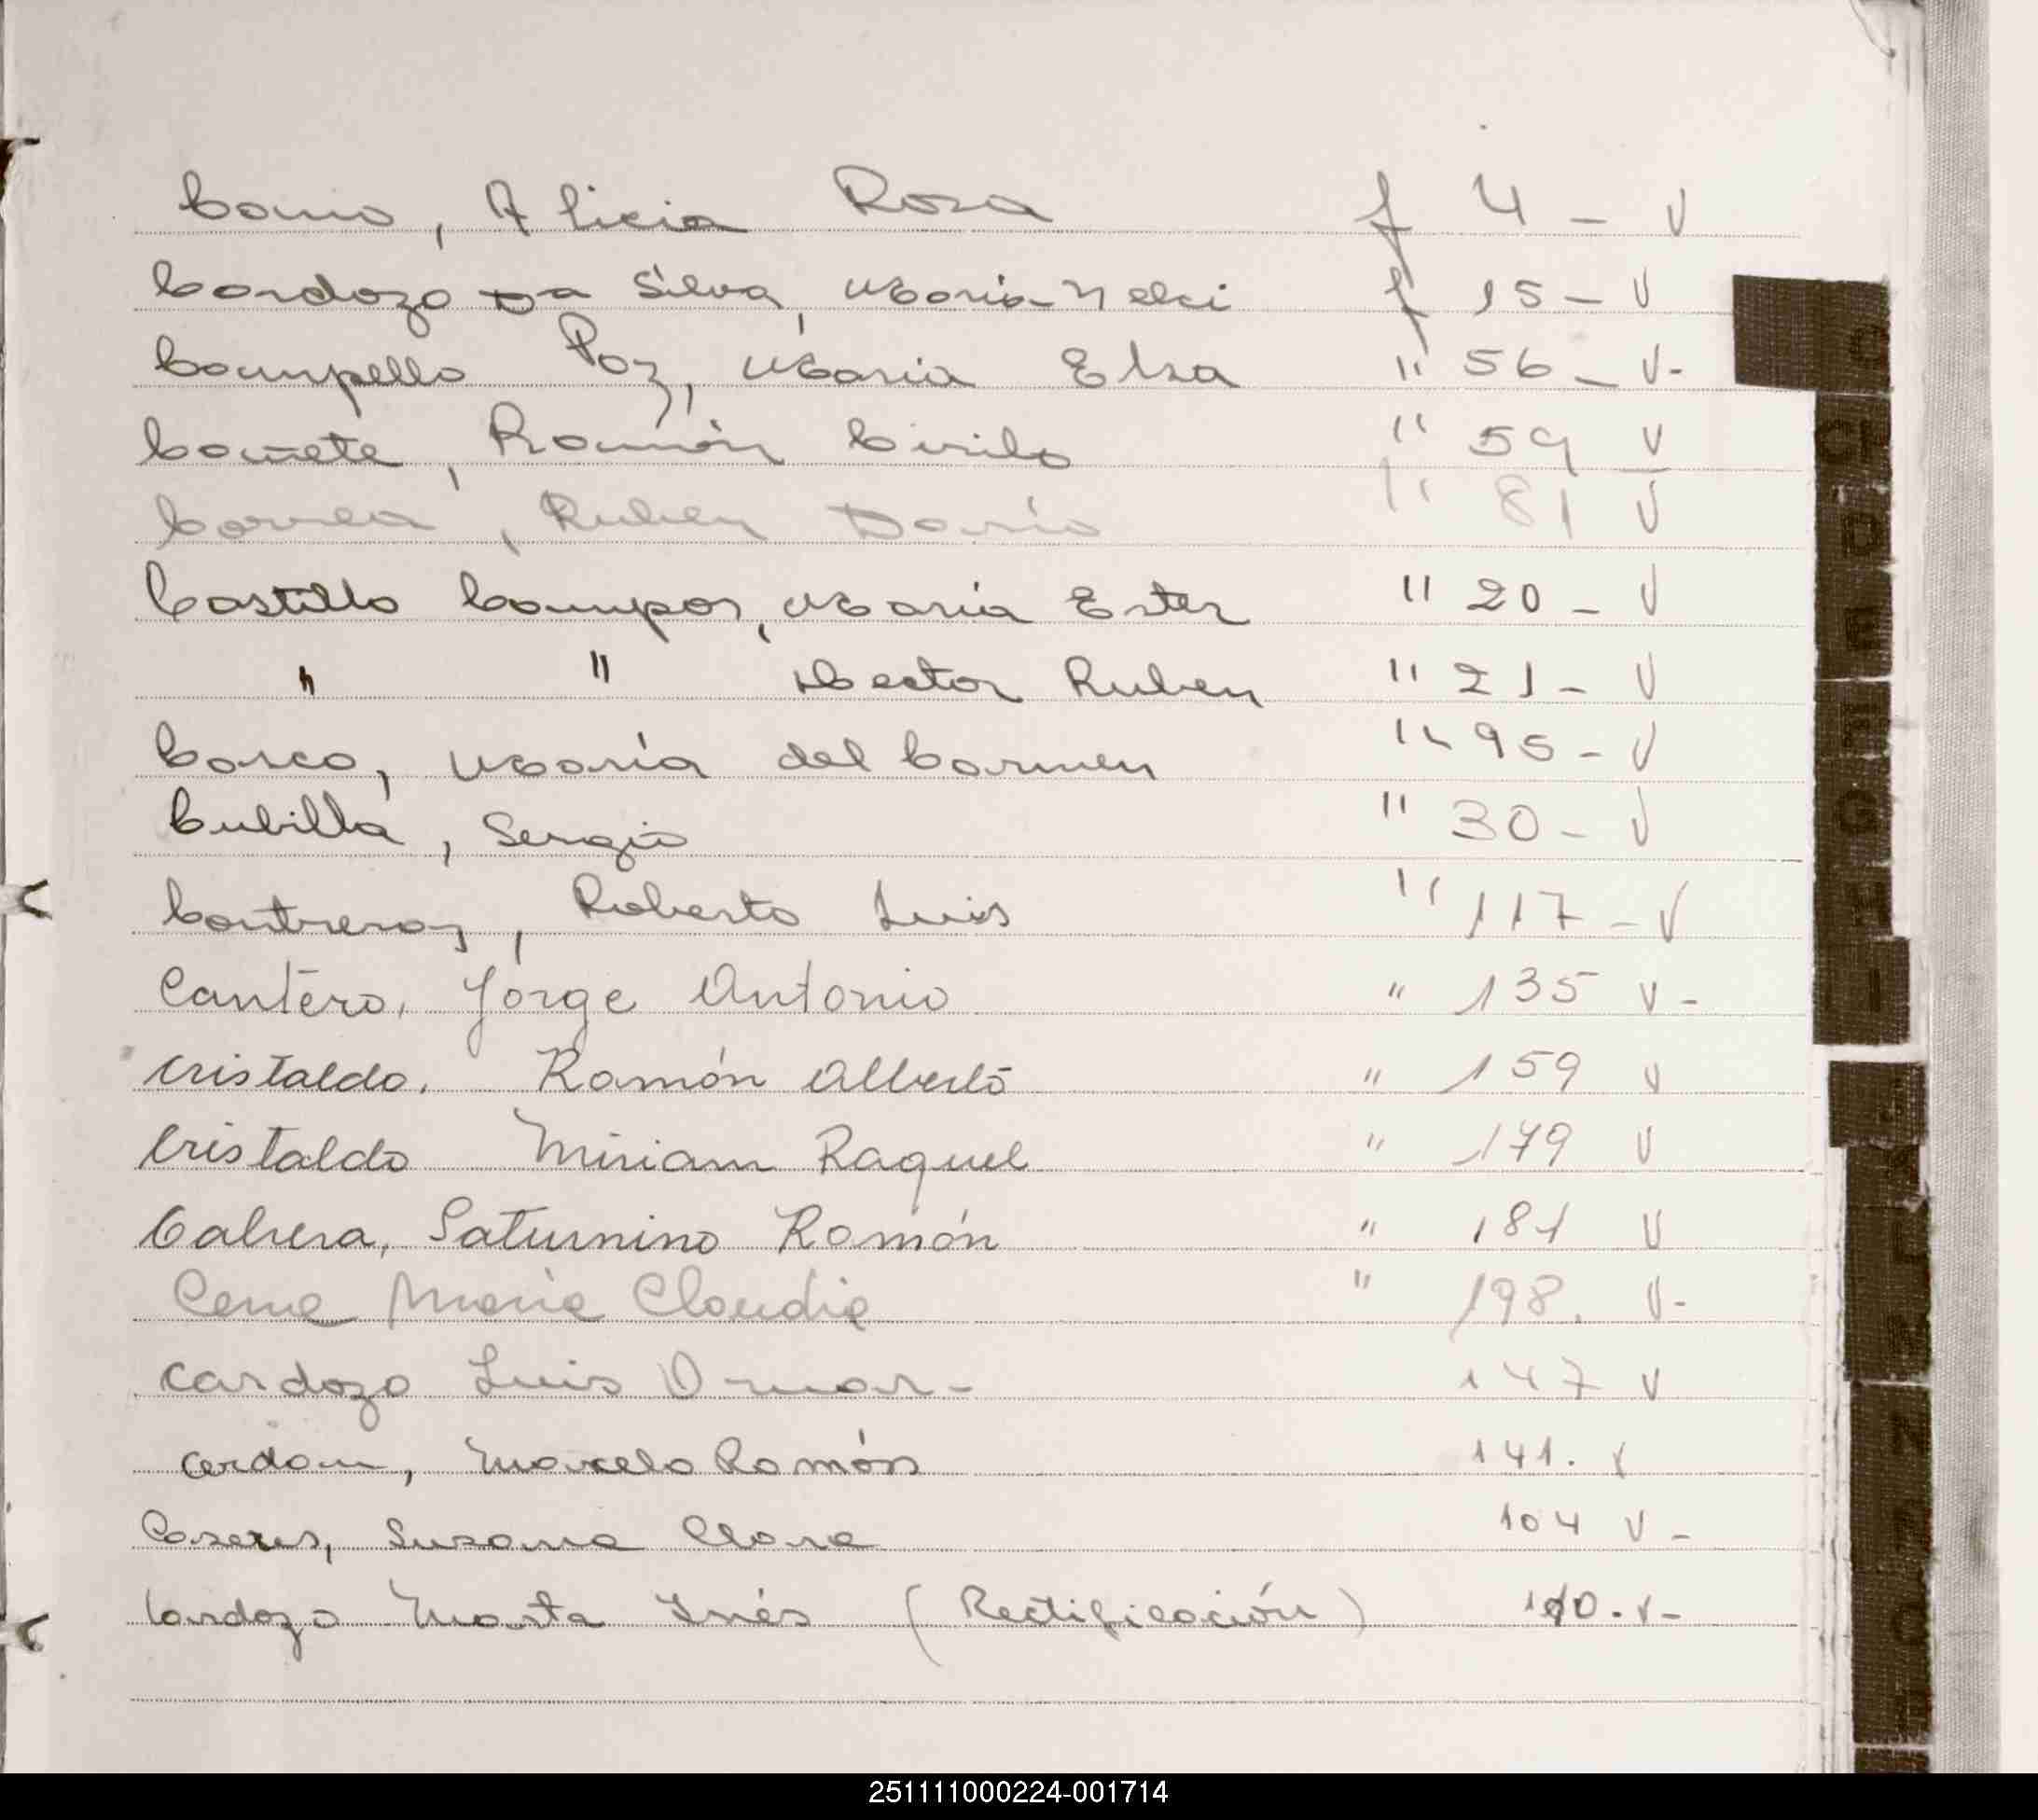 Cano, Alicia Rosa f 4 - V
Cardozo Da Silva, Maria Nelci f 15 - V
Campello Paz, Maria Elsa " 56 - V-
Cañete, Ramón Cirilo " 59 V
Correa, Ruben Dario " 81 V
Castillo Campos, Maria Ester " 20 - V
" " Hector Ruben " 21 - V
Casco, María del Carmen " 95 - V
Cubilla, Sergio " 30 - V
Contreras, Roberto Luis " 117 - V
Cantero, Jorge Antonio " 135 V -
Cristaldo, Ramón Alberto " 159 V
Cristaldo Miriam Raquel " 179 V
Cabrera, Saturnino Ramón " 181 V
María Claudia " 198. V-
Cardozo Luis Omar - 147 V
Marcelo Ramón 141. V
Caseres, Susana Clara 104 V -
Cardozo Marta Inés (Rectificación) V-
C
CH
D
E
F
G
H
I
J
251111000224-001714